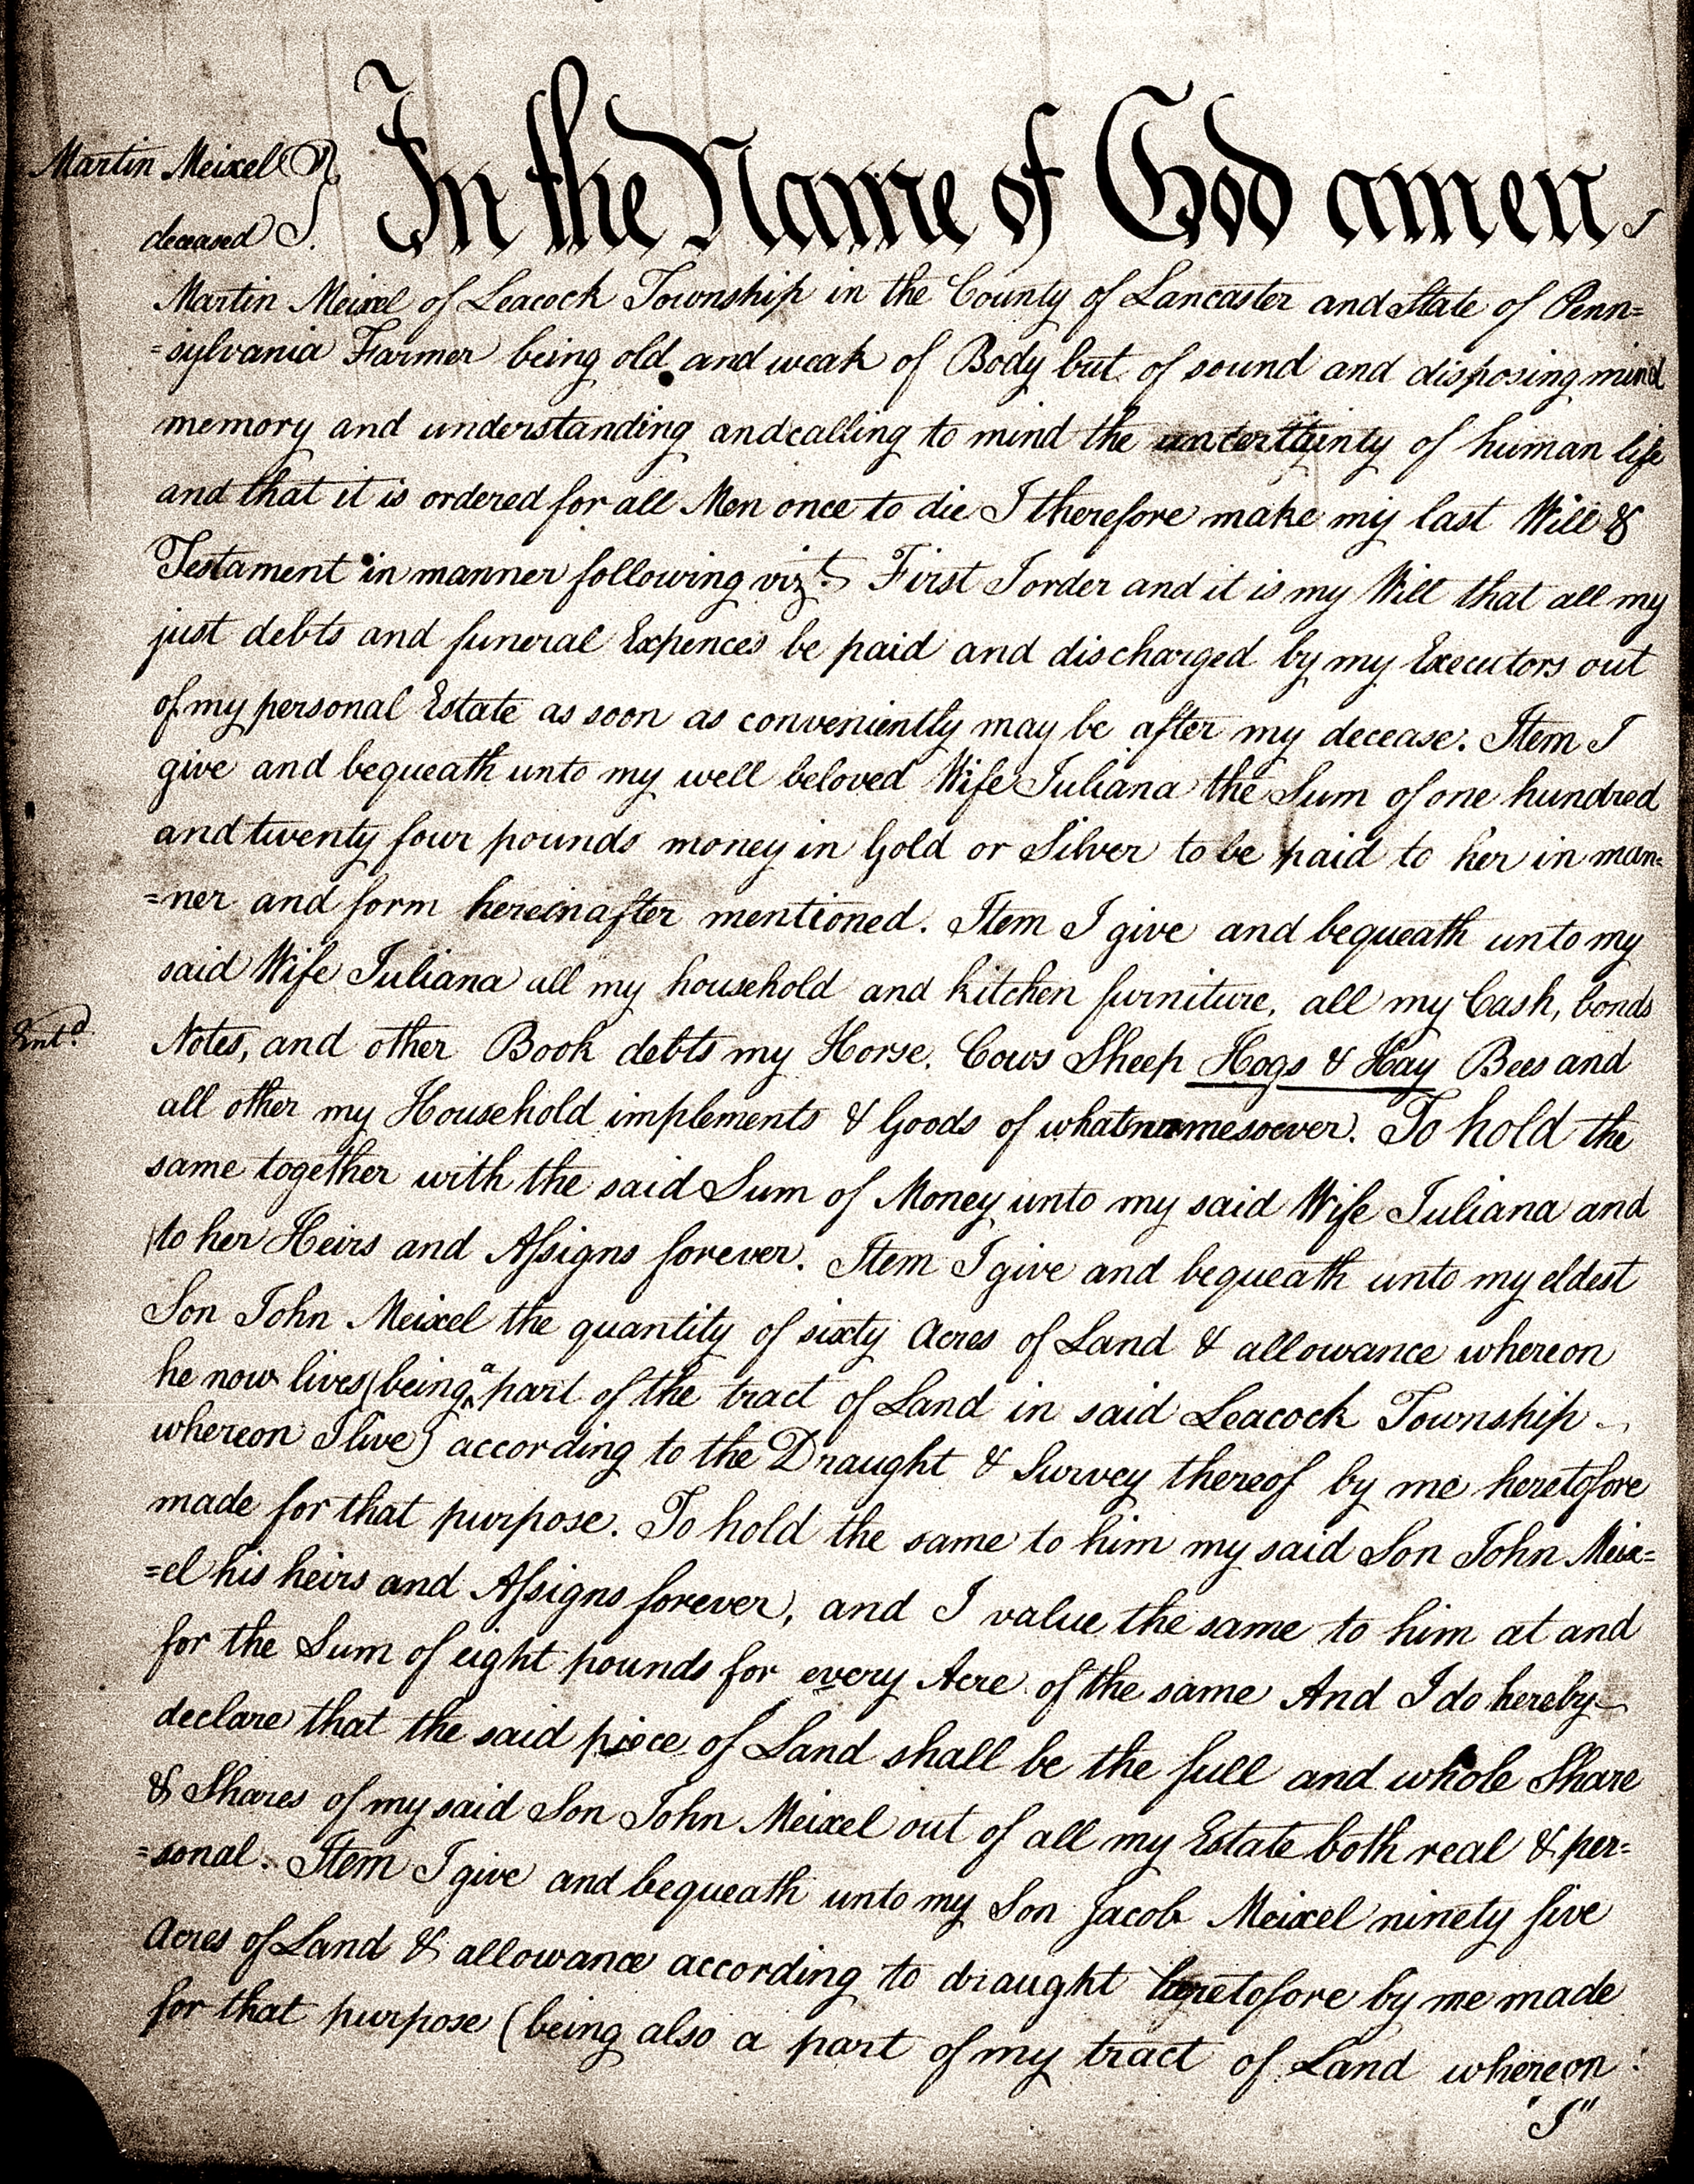 Martin Meixel
deceased
In the Name of God amen I
Martin Meixel of Leacock Township in the County of Lancaster and State of Penn=
=sylvania Farmer being old and weak of Body but of sound and disposing mind
memory and understanding and calling to mind the uncertainty of human life
and that it is ordered for all Men once to die I therefore make my last Will &
Testament in manner following vizt. First I order and it is my Will that all my
just debts and funeral Expences be paid and discharged by my Executors out
of my personal Estate as soon as conveniently may be after my decease. Item I
give and bequeath unto my well beloved Wife Juliana the Sum of one hundred
and twenty four pounds money in Gold or Silver to be paid to her in man=
=ner and form hereinafter mentioned. Item I give and bequeath unto my
said Wife Juliana all my household and kitchen furniture, all my Cash, bonds
Entd.
Notes, and other Book debts my Horse, Cows Sheep Hogs & Hay Bees and
all other my Household implements & Goods of whatnamesoever. To hold the
same together with the said Sum of Money unto my said Wife Juliana and
to her Heirs and Assigns forever. Item I give and bequeath unto my eldest
Son John Meixel the quantity of sixty Acres of Land & allowance whereon
he now lives (being a part of the tract of Land in said Leacock Township
whereon I live) according to the Draught & Survey thereof by me heretofore
made for that purpose. To hold the same to him my said Son John Meix=
=el his heirs and Assigns forever, and I value the same to him at and
for the Sum of eight pounds for every Acre of the same And I do hereby
declare that the said piece of Land shall be the full and whole Share
& Shares of my said Son John Meixel out of all my Estate both real & per=
=sonal. Item I give and bequeath unto my Son Jacob Meixel ninety five
Acres of Land & allowance according to draught heretofore by me made
for that purpose (being also a part of my tract of Land whereon :
"I"